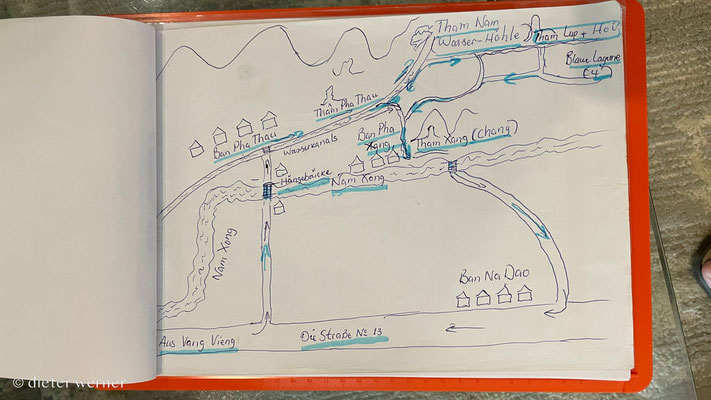 Tham Nam
(Wasser-Höhle)
Tham Lup + Hoi
Blau Lagune
(4)
Tham Pha Thau
Ban Pha Thau
Wasserkanals
Ban Pha
Xang
Tham Xang (Chang)
Hängebrücke
Nam Xong
Nam Xong
Ban Na Dao
Aus Vang Vieng
Die Straße No 13
© dieter werner